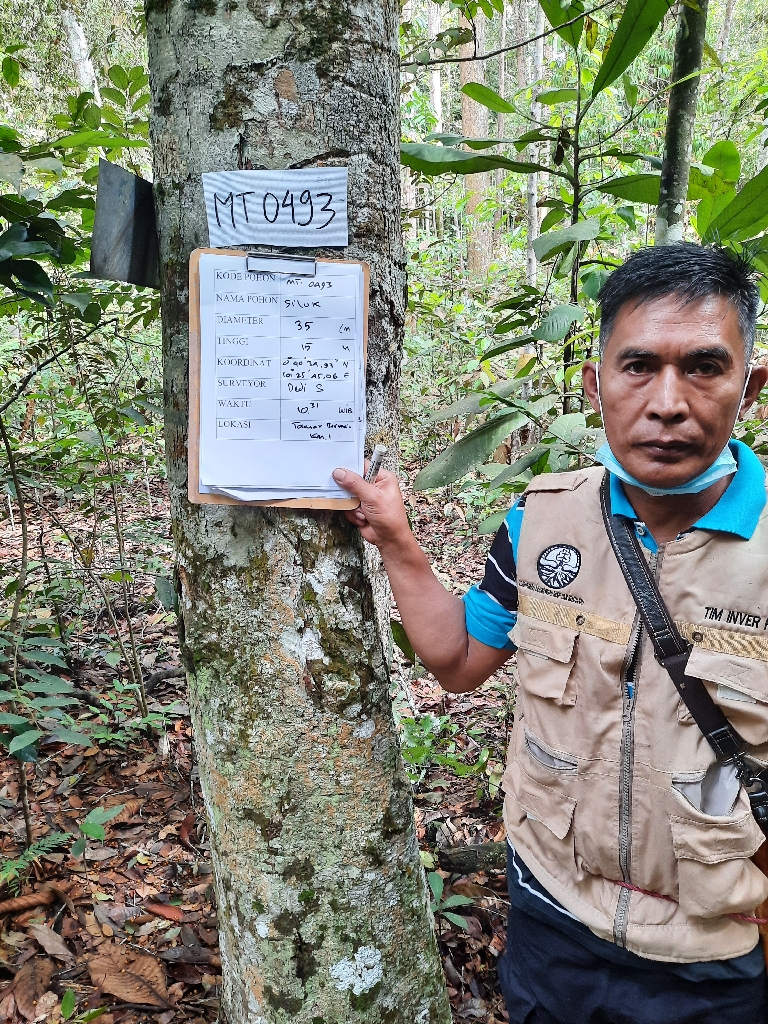 MT 0493
KODE POHON MT. 0493
NAMA POHON Siluk
DIAMETER 35 Cm
TINGGI 15 M
KOORDINAT
SURVEYOR Dedi S
WAKTU 10 31 WIB
LOKASI
Km. 1
TIM INVER